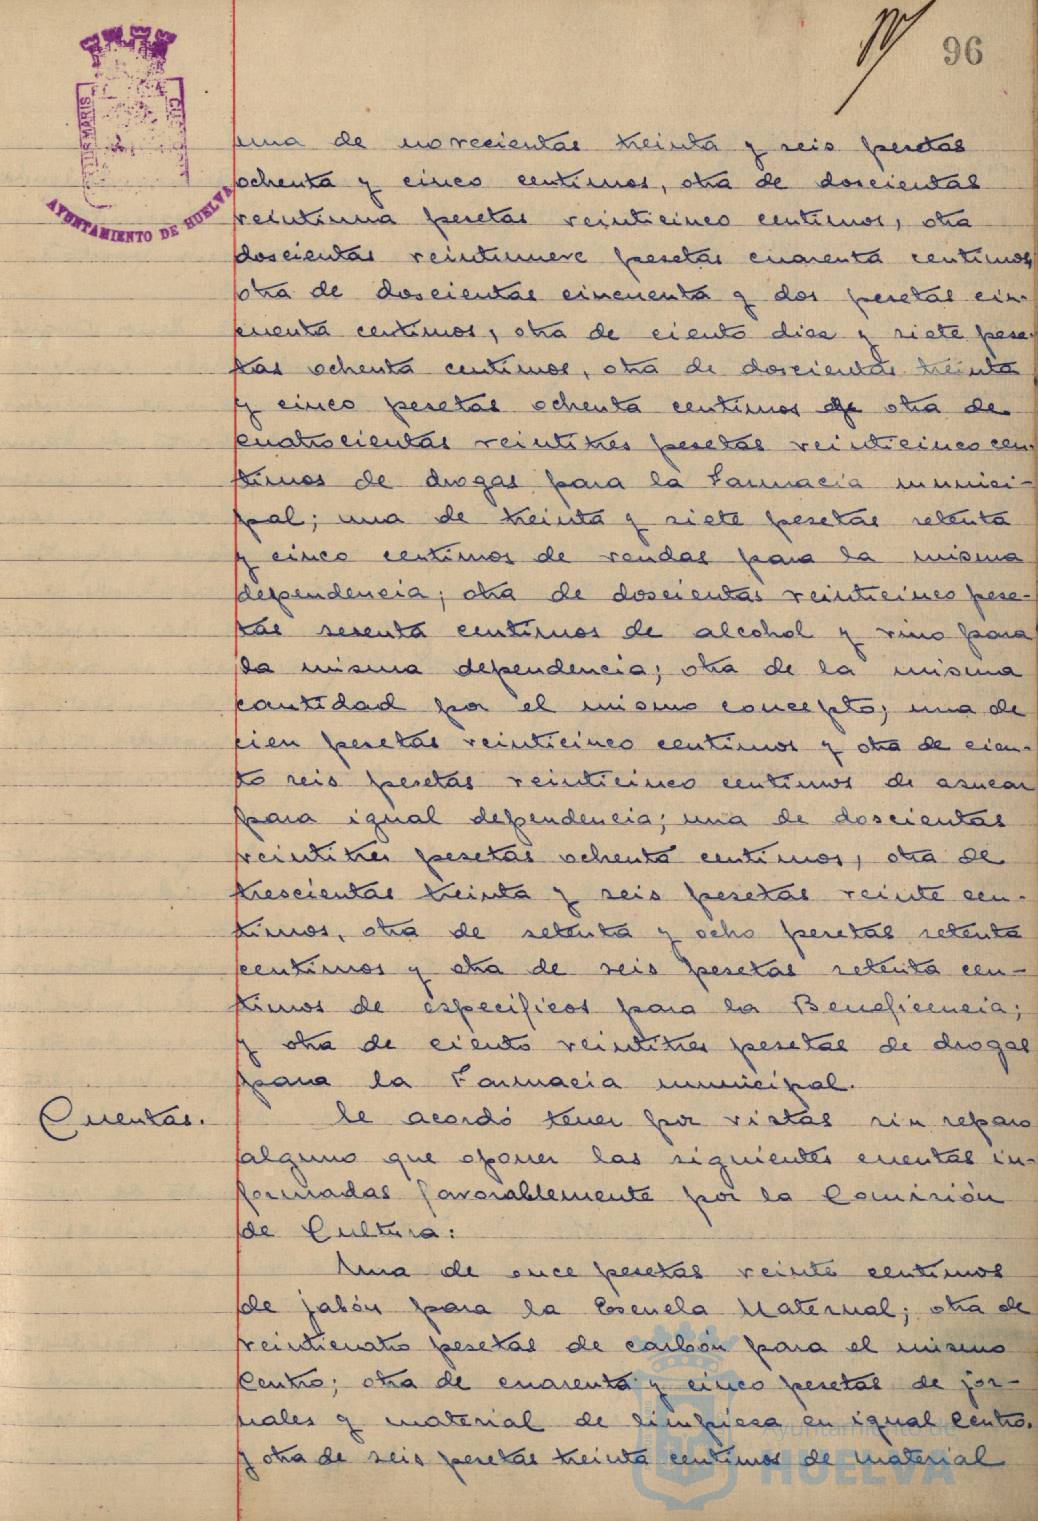 96
PORTUS MARIS
AYUNTAMIENTO DE HUELVA
una de novecientas treinta y seis pesetas
ochenta y cinco centimos, otra de doscientas
veintiuna pesetas veinticinco centimos, otra
doscientas veintinueve pesetas cuarenta centimos
otra de doscientas cincuenta y dos pesetas cin-
cuenta centimos, otra de ciento diez y siete pese-
tas ochenta centimos, otra de doscientas treinta
y cinco pesetas ochenta centimos otra de
cuatrocientas veintitres pesetas veinticinco cen-
timos de drogas para la Farmacia munici-
pal; una de treinta y siete pesetas setenta
y cinco centimos de vendas para la misma
dependencia; otra de doscientas veinticinco pese-
tas sesenta centimos de alcohol y vino para
la misma dependencia; otra de la misma
cantidad por el mismo concepto; una de
cien pesetas veinticinco centimos y otra de cien-
to seis pesetas veinticinco centimos de azucar
para igual dependencia; una de doscientas
veintitres pesetas ochenta centimos, otra de
trescientas treinta y seis pesetas veinte cen-
timos, otra de setenta y ocho pesetas setenta
centimos y otra de seis pesetas setenta cen-
timos de especificos para la Beneficencia;
y otra de ciento veintitres pesetas de drogas
para la Farmacia municipal.
Cuentas. Se acordó tener por vistas sin reparo
alguno que oponer las siguientes cuentas in-
formadas favorablemente por la Comisión
de Cultura:
Una de once pesetas veinte centimos
de jabón para la Escuela Maternal; otra de
veinticuatro pesetas de carbón para el mismo
Centro; otra de cuarenta y cinco pesetas de jor-
nales y material de limpieza en igual Centro.
y otra de seis pesetas treinta centimos de material
Ayuntamiento de
HUELVA